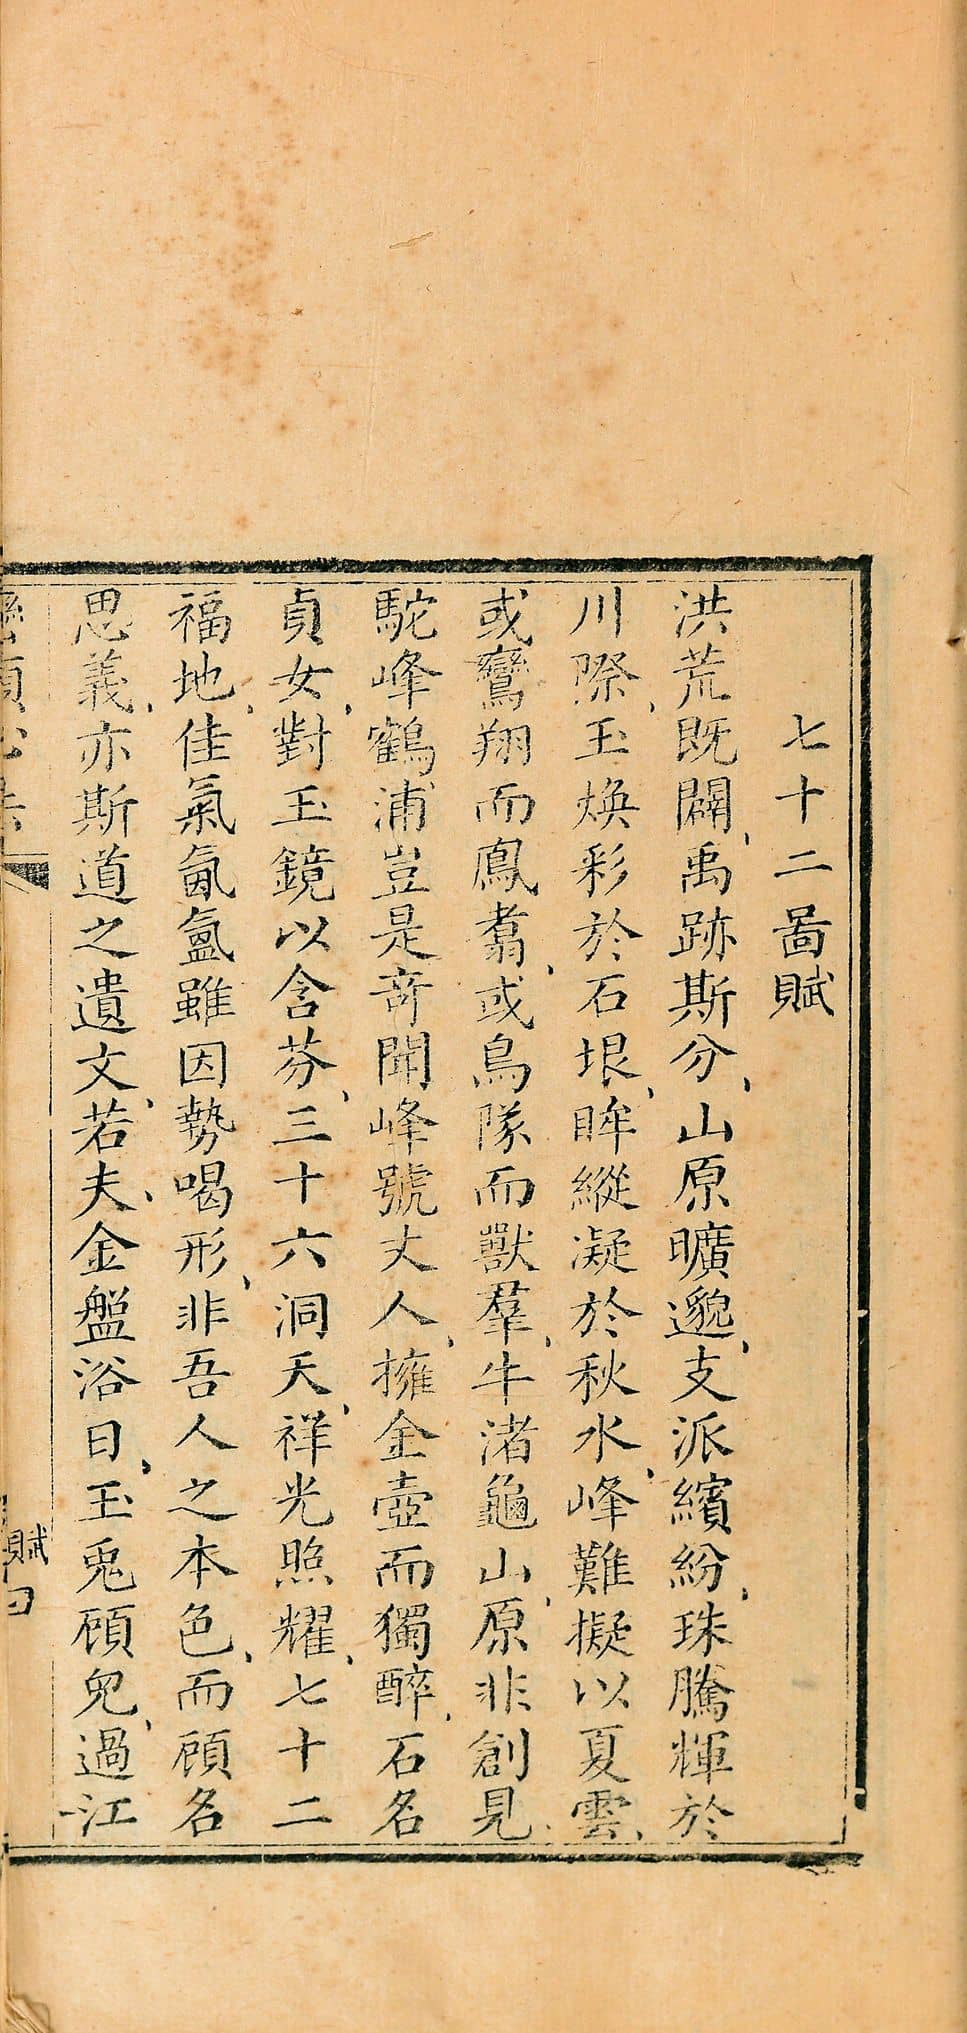 七十二啚賦
洪荒既闢、禹跡斯分、山原曠邈、支派繽紛、珠騰輝於
川際、玉煥彩於石垠、眸縱凝於秋水、峰難擬以夏雲、
或鸞翔而鳳翥、或鳥隊而獸羣、牛渚龜山、原非創見、
駝峰鶴浦豈是竒聞峰號丈人、擁金壺而獨醉、石名
貞女、對玉鏡以含芬、三十六洞天、祥光照耀、七十二
福地、佳氣氤氳雖因勢喝形、非吾人之本色、而頋名
思義、亦斯道之遺文、若夫、金盤浴日、玉兎頋兒、過江
賦